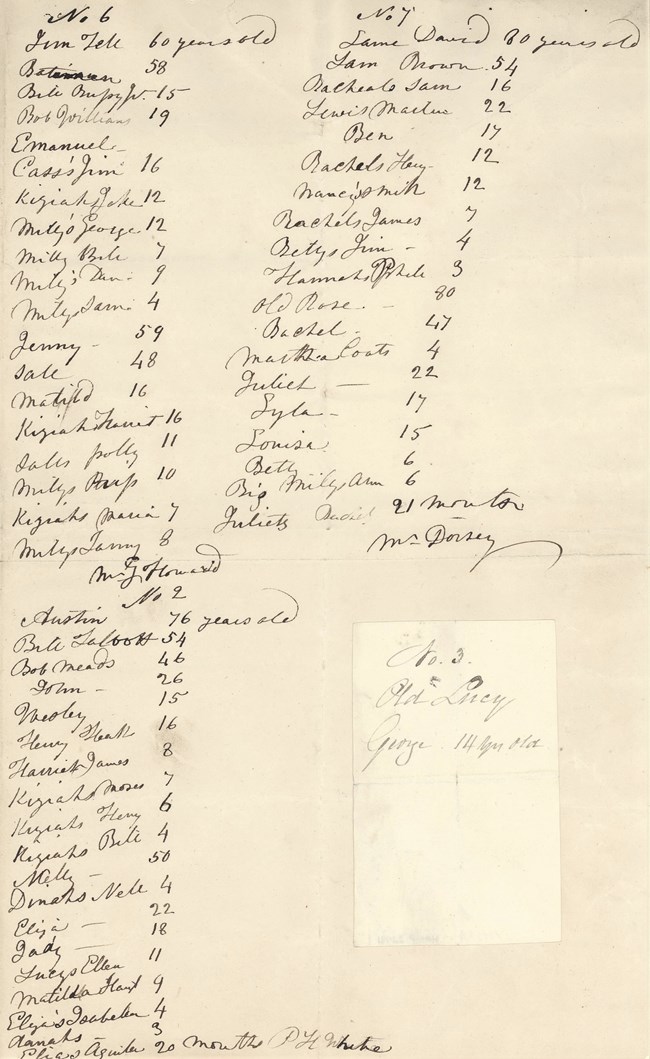 No 6
Jim Tell 60 years old
Bateman 58
Bill Jr. 15
Bob Williams 19
Emanuel
Cass's Jim 16
Kiziahs Jake 12
Milly's George 12
Milly Bill 7
Milly's Dan 9
Milys Sam 4
Jenny - 59
Sall 48
Matild 16
Kiziahs Harriet 16
Salls polly 11
Milys 10
Kiziahs Maria 7
Milys Fanny 8
Mr G Howard
No 7
Lame David 80 years old
Sam Brown 54
Racheals Sam 16
Lewis 22
Ben 17
Rachels Heny 12
Nancy's 12
Rachels James 7
Betys Jim - 4
Hannahs Phile 3
Old Rose - 80
Rachel - 47
Martha Coats 4
Juliet - 22
Lyla - 17
Louisa 15
Betty 6
Big Milys Ann 6
Juliets Rachel 21 months
Mr Dorsey
No 2
Austin 76 years old
Bill Talbott 54
Bob Meads 46
John - 26
Wesley 15
Henry Heath 16
Harriet James 8
Kiziahs Moses 7
Kiziahs Heny 6
Kiziahs Bill 4
Nelly - 50
Dinahs Nell 4
Eliza - 22
18
Lucys Ellen 11
Matilda 9
Eliza's Isabella 4
3
Elizas Aquila 20 months P H White
No. 3.
Old Lucy
George 14 yrs old